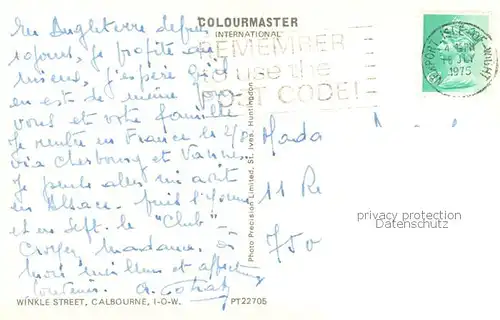 En Angleterre depuis
10 jours, je profite au
mieux, j'espère qu'il
en est de même
vous et votre famille
Je rentre en France le 2/8
via Cherbourg et Vannes
Je pense aller mi août
en Alsace. puis l'Yonne
et en Sept. le "Club"
Croyez Madame, à
mon meilleur et affectueux
souvenir.
COLOURMASTER
INTERNATIONAL
REMEMBER
to use the
POST CODE!
NEWPORT ISLE OF WIGHT
JLY
1975
Mada
11 Re
750
privacy protection
Datenschutz
Photo Precision Limited, St. Ives, Huntingdon
WINKLE STREET, CALBOURNE, I-O-W. PT22705